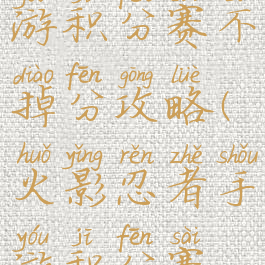 游积分赛不
diào fēn gōng lüè
掉分攻略(
huǒ yǐng rěn zhě shǒu
火影忍者手
yóu jī fēn sài
游积分赛